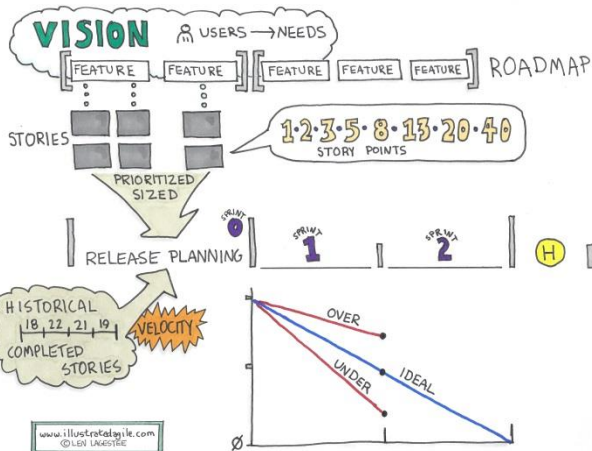 VISION
USERS → NEEDS
FEATURE FEATURE FEATURE FEATURE FEATURE
ROADMAP
STORIES
1·2·3·5·8·13·20·40
STORY POINTS
PRIORITIZED
SIZED
RELEASE PLANNING
SPRINT
0
SPRINT
1
SPRINT
2
H
HISTORICAL
18 22 21 19
COMPLETED
STORIES
VELOCITY
OVER
UNDER
IDEAL
Ø
www.illustratedagile.com
© LEN LAGESTEE